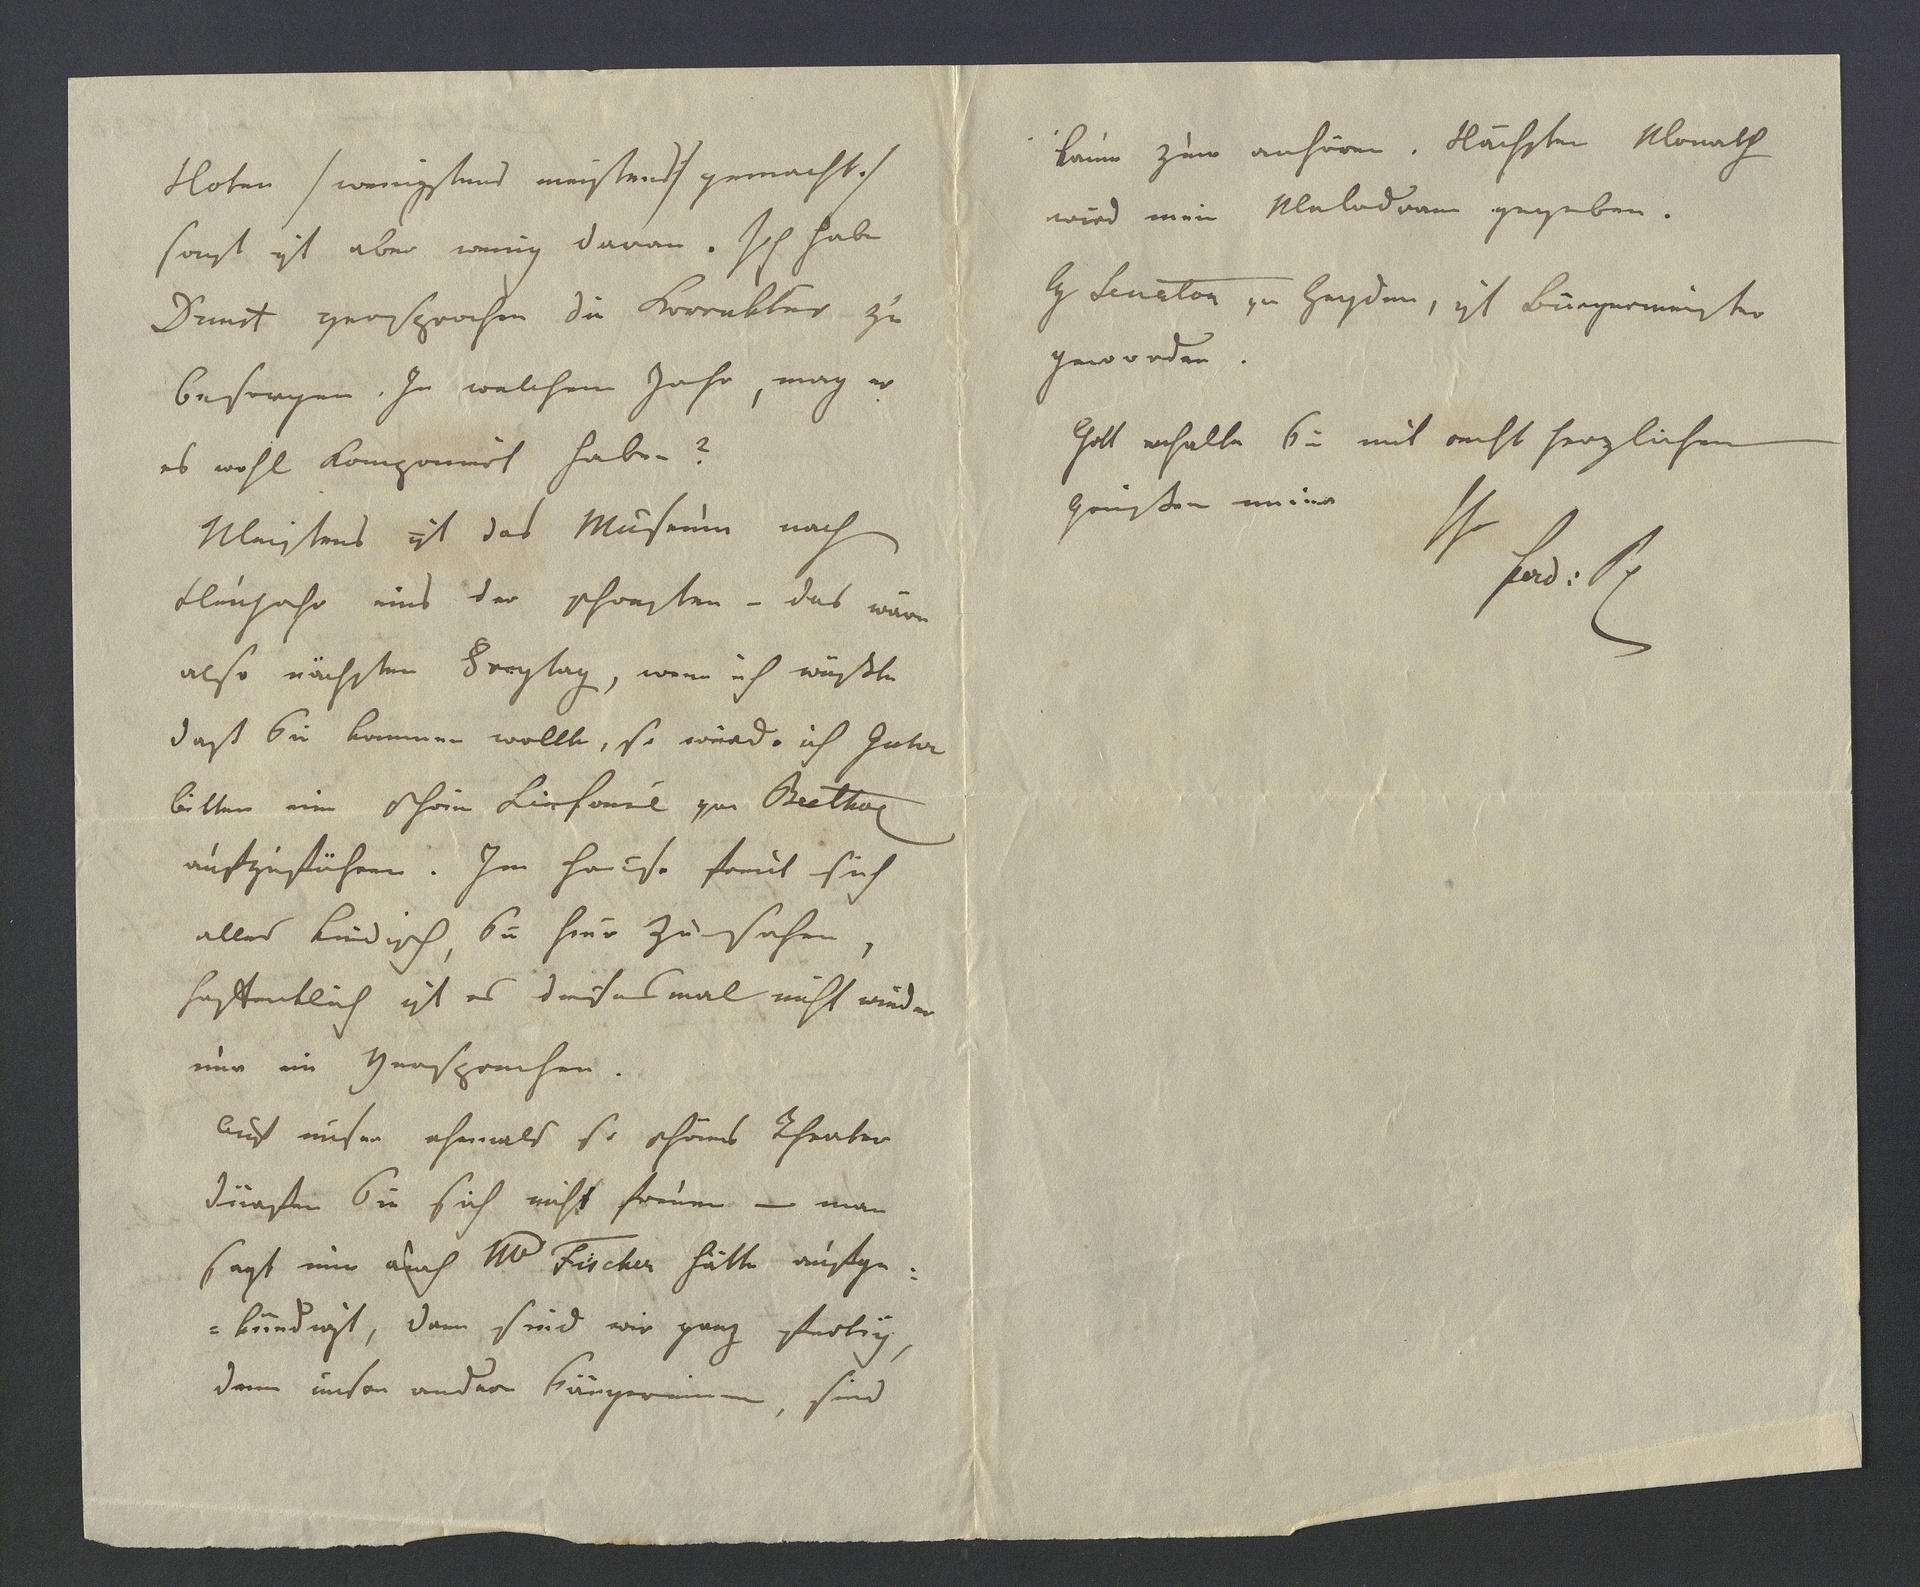 Noten /wenigstens meistens/ gemacht./
sonst ist aber wenig daran. Ich habe
Dunst versprochen die Korrektur zu
besorgen. In welchem Jahr, mag er
es wohl komponirt haben?
Meistens ist das Museum nach
Neujahr eins der schönsten – das wäre
also nächsten Freytag, wenn ich wüßte
daß Sie kommen wollte, so würde ich Guhr
bitten eine schöne Sinfonie von Beethov
aufzuführen. Im Hause freut sich
alles kindisch, Sie hier zu sehen,
hoffentlich ist es diesesmal nicht wieder
nur ein Versprechen.
Auf unser ehemals so schönes Theater
dürfen Sie sich nicht freuen — man
sagt mir auch Md Fischer hätte aufge:
=kündigt, dann sind wir ganz fertig,
denn unsere andern Sängerinnen, sind
kaum zum anhören. Nächsten Monath
wird mein Melodram gegeben.
H Senator von Heyden, ist Bürgermeister
geworden.
Gott erhalte Sie mit recht herzlichen
Grüßen meiner Ihr
Ferd: Rs